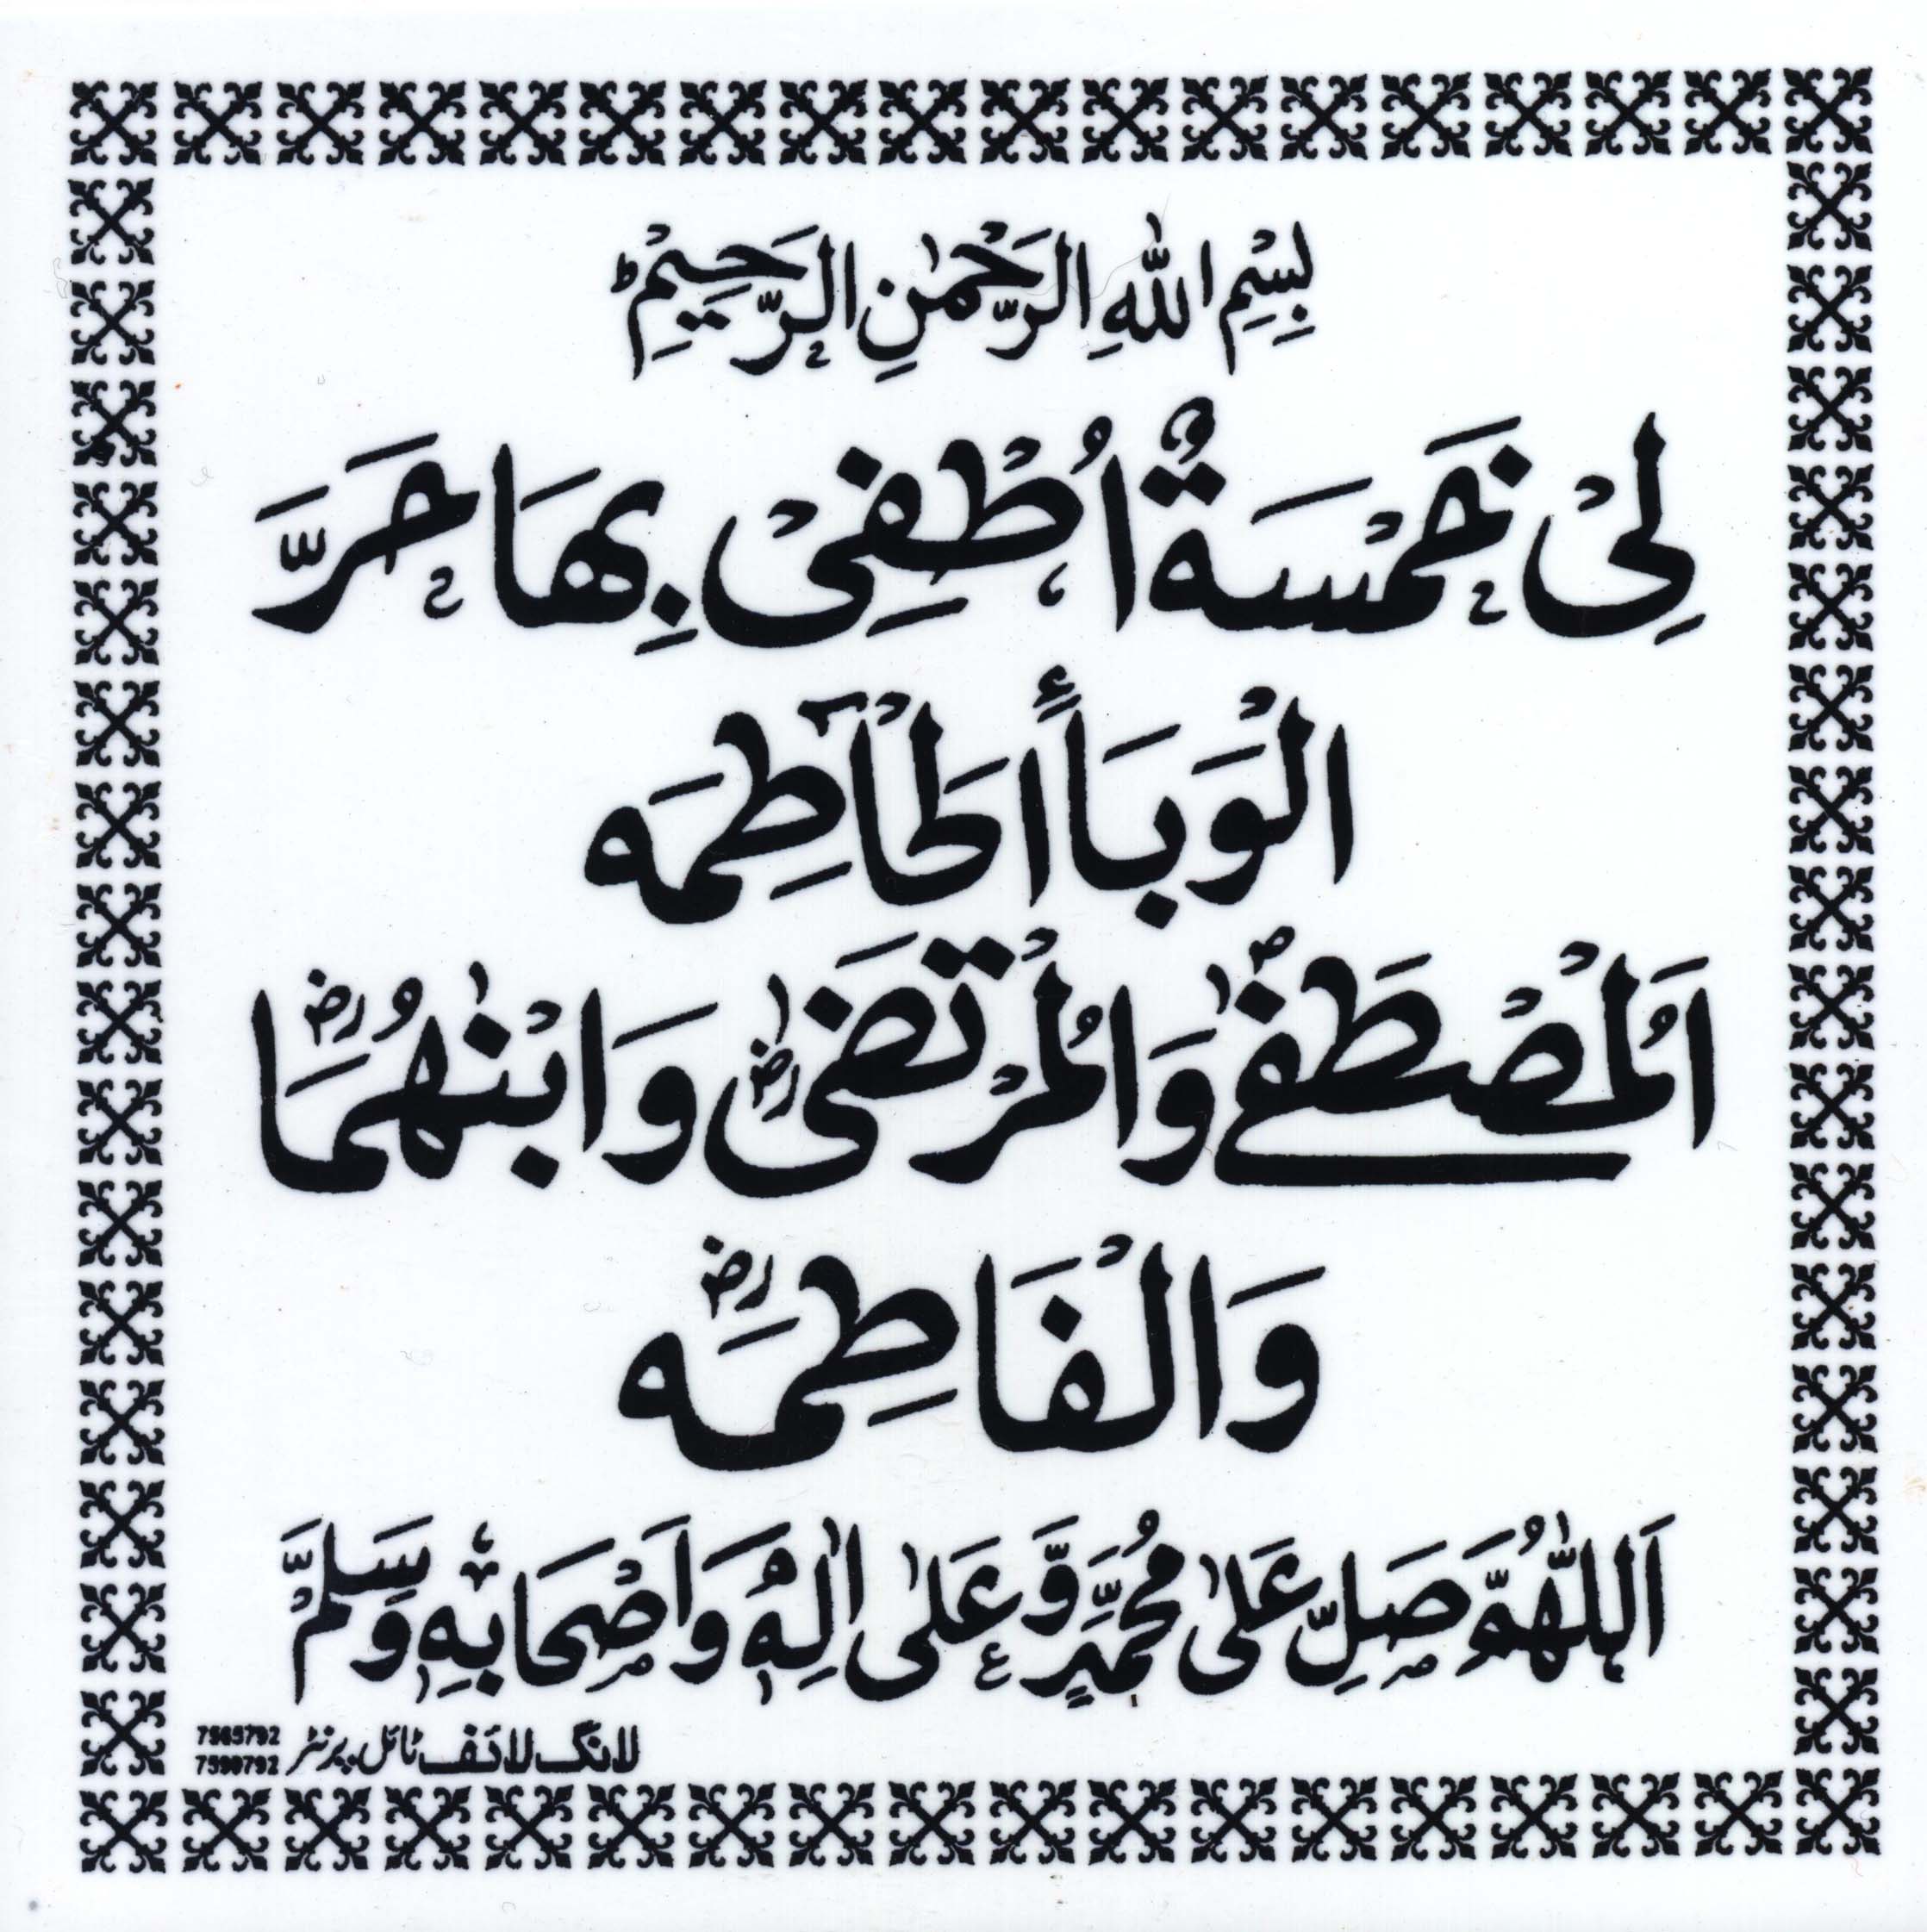 بِسْمِ اللّٰهِ الرَّحْمٰنِ الرَّحِيْمِ ط
لِیْ خَمْسَةٌ اُطْفِیْ بِهَا حَرَّ
الْوَبَأِ الْحَاطِمَه
اَلْمُصْطَفٰے وَالْمُرْتَضٰی رض وَابْنٰهُمَا رض
وَالْفَاطِمَه رض
اَللّٰهُمَّ صَلِّ عَلٰی مُحَمَّدٍ وَّعَلٰی اٰلِهٖ وَاَصْحَابِهٖ وَسَلِّمْ
لانگ لائف ٹائل پرنٹر 7565792
7590792